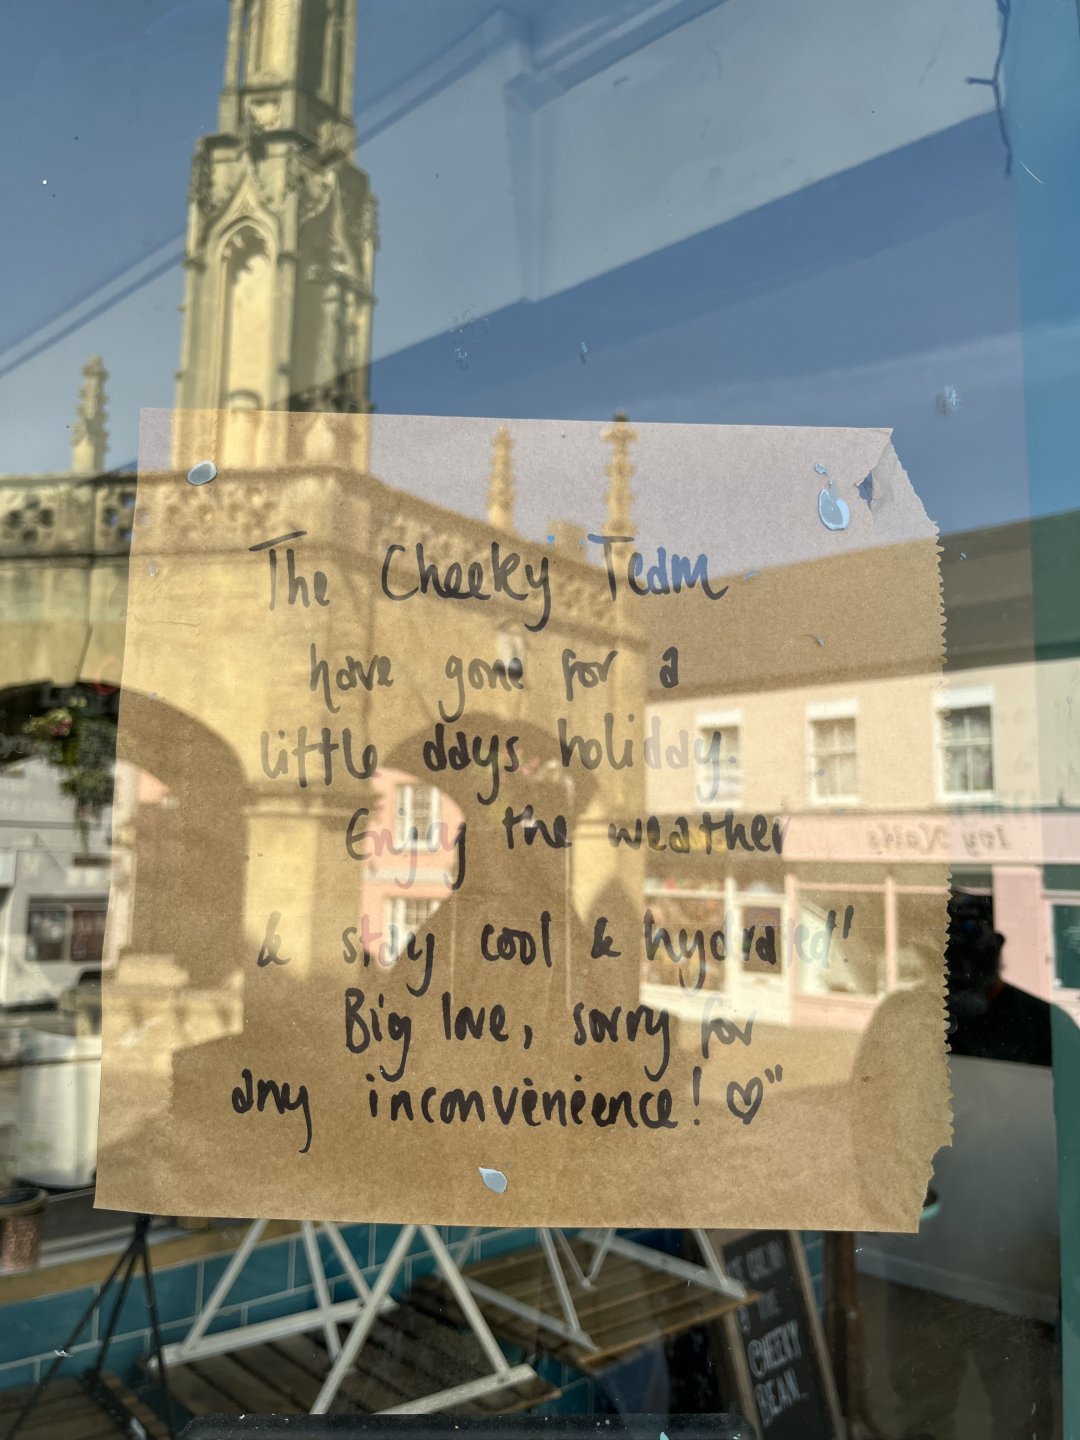 The Cheeky Team
have gone for a
little days holiday.
Enjoy the weather
& stay cool & hydrated!
Big love, sorry for
any inconvenience! ♡"
Joy Nails
THE
CHEEKY
BEAN..